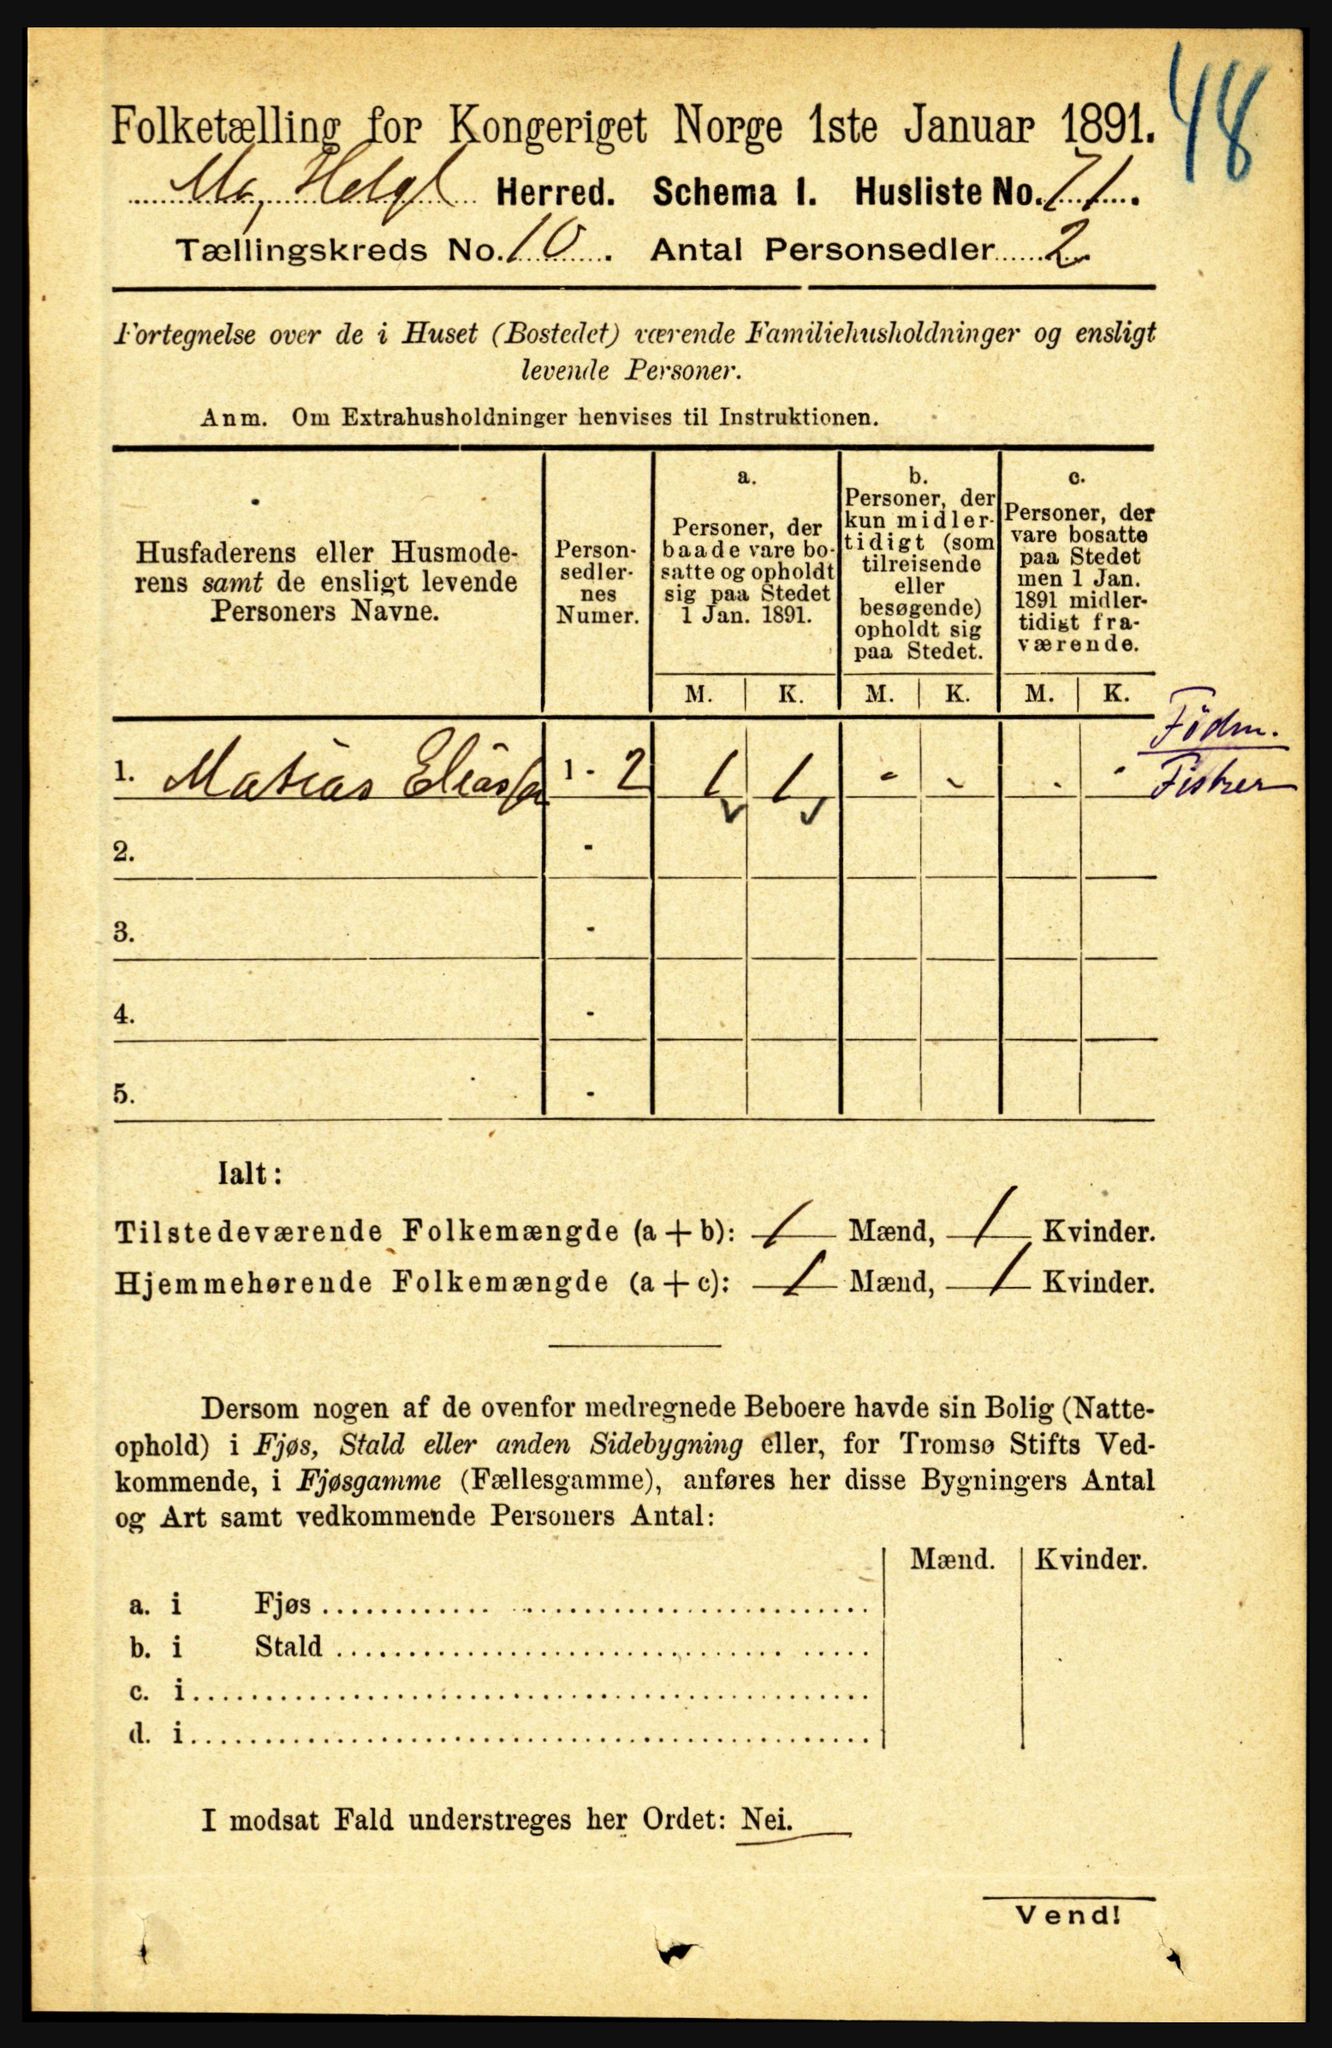 48
Folketælling for Kongeriget Norge 1ste Januar 1891.
Mo, Helgl Herred. Schema 1. Husliste No. 71.
Tællingskreds No. 10. Antal Personsedler 2
Fortegnelse over de i Huset (Bostedet) værende Familiehusholdninger og ensligt
levende Personer.
Anm. Om Extrahusholdninger henvises til Instruktionen.
Husfaderens eller Husmode-
rens samt de ensligt levende
Personers Navne.
Person-
sedler-
nes
Numer.
a.
Personer, der
baade vare bo-
satte og opholdt
sig paa Stedet
1 Jan. 1891.
b.
Personer, der
kun midler-
tidigt (som
tilreisende
eller
besøgende)
opholdt sig
paa Stedet.
c.
Personer, der
vare bosatte
paa Stedet
men 1 Jan.
1891 midler-
tidigt fra-
værende.
M. K. M. K. M. K.
1. Matias Eliass 1 - 2 1 1 - - . -
Födm.
Fisker
2. -
3. -
4. -
5. -
Ialt:
Tilstedeværende Folkemængde (a + b): 1 Mænd, 1 Kvinder.
Hjemmehørende Folkemængde (a + c): 1 Mænd, 1 Kvinder.
Dersom nogen af de ovenfor medregnede Beboere havde sin Bolig (Natte-
ophold) i Fjøs, Stald eller anden Sidebygning eller, for Tromsø Stifts Ved-
kommende, i Fjøsgamme (Fællesgamme), anføres her disse Bygningers Antal
og Art samt vedkommende Personers Antal:
Mænd. Kvinder.
a. i Fjøs
b. i Stald
c. i
d. i
I modsat Fald understreges her Ordet: Nei.
Vend!